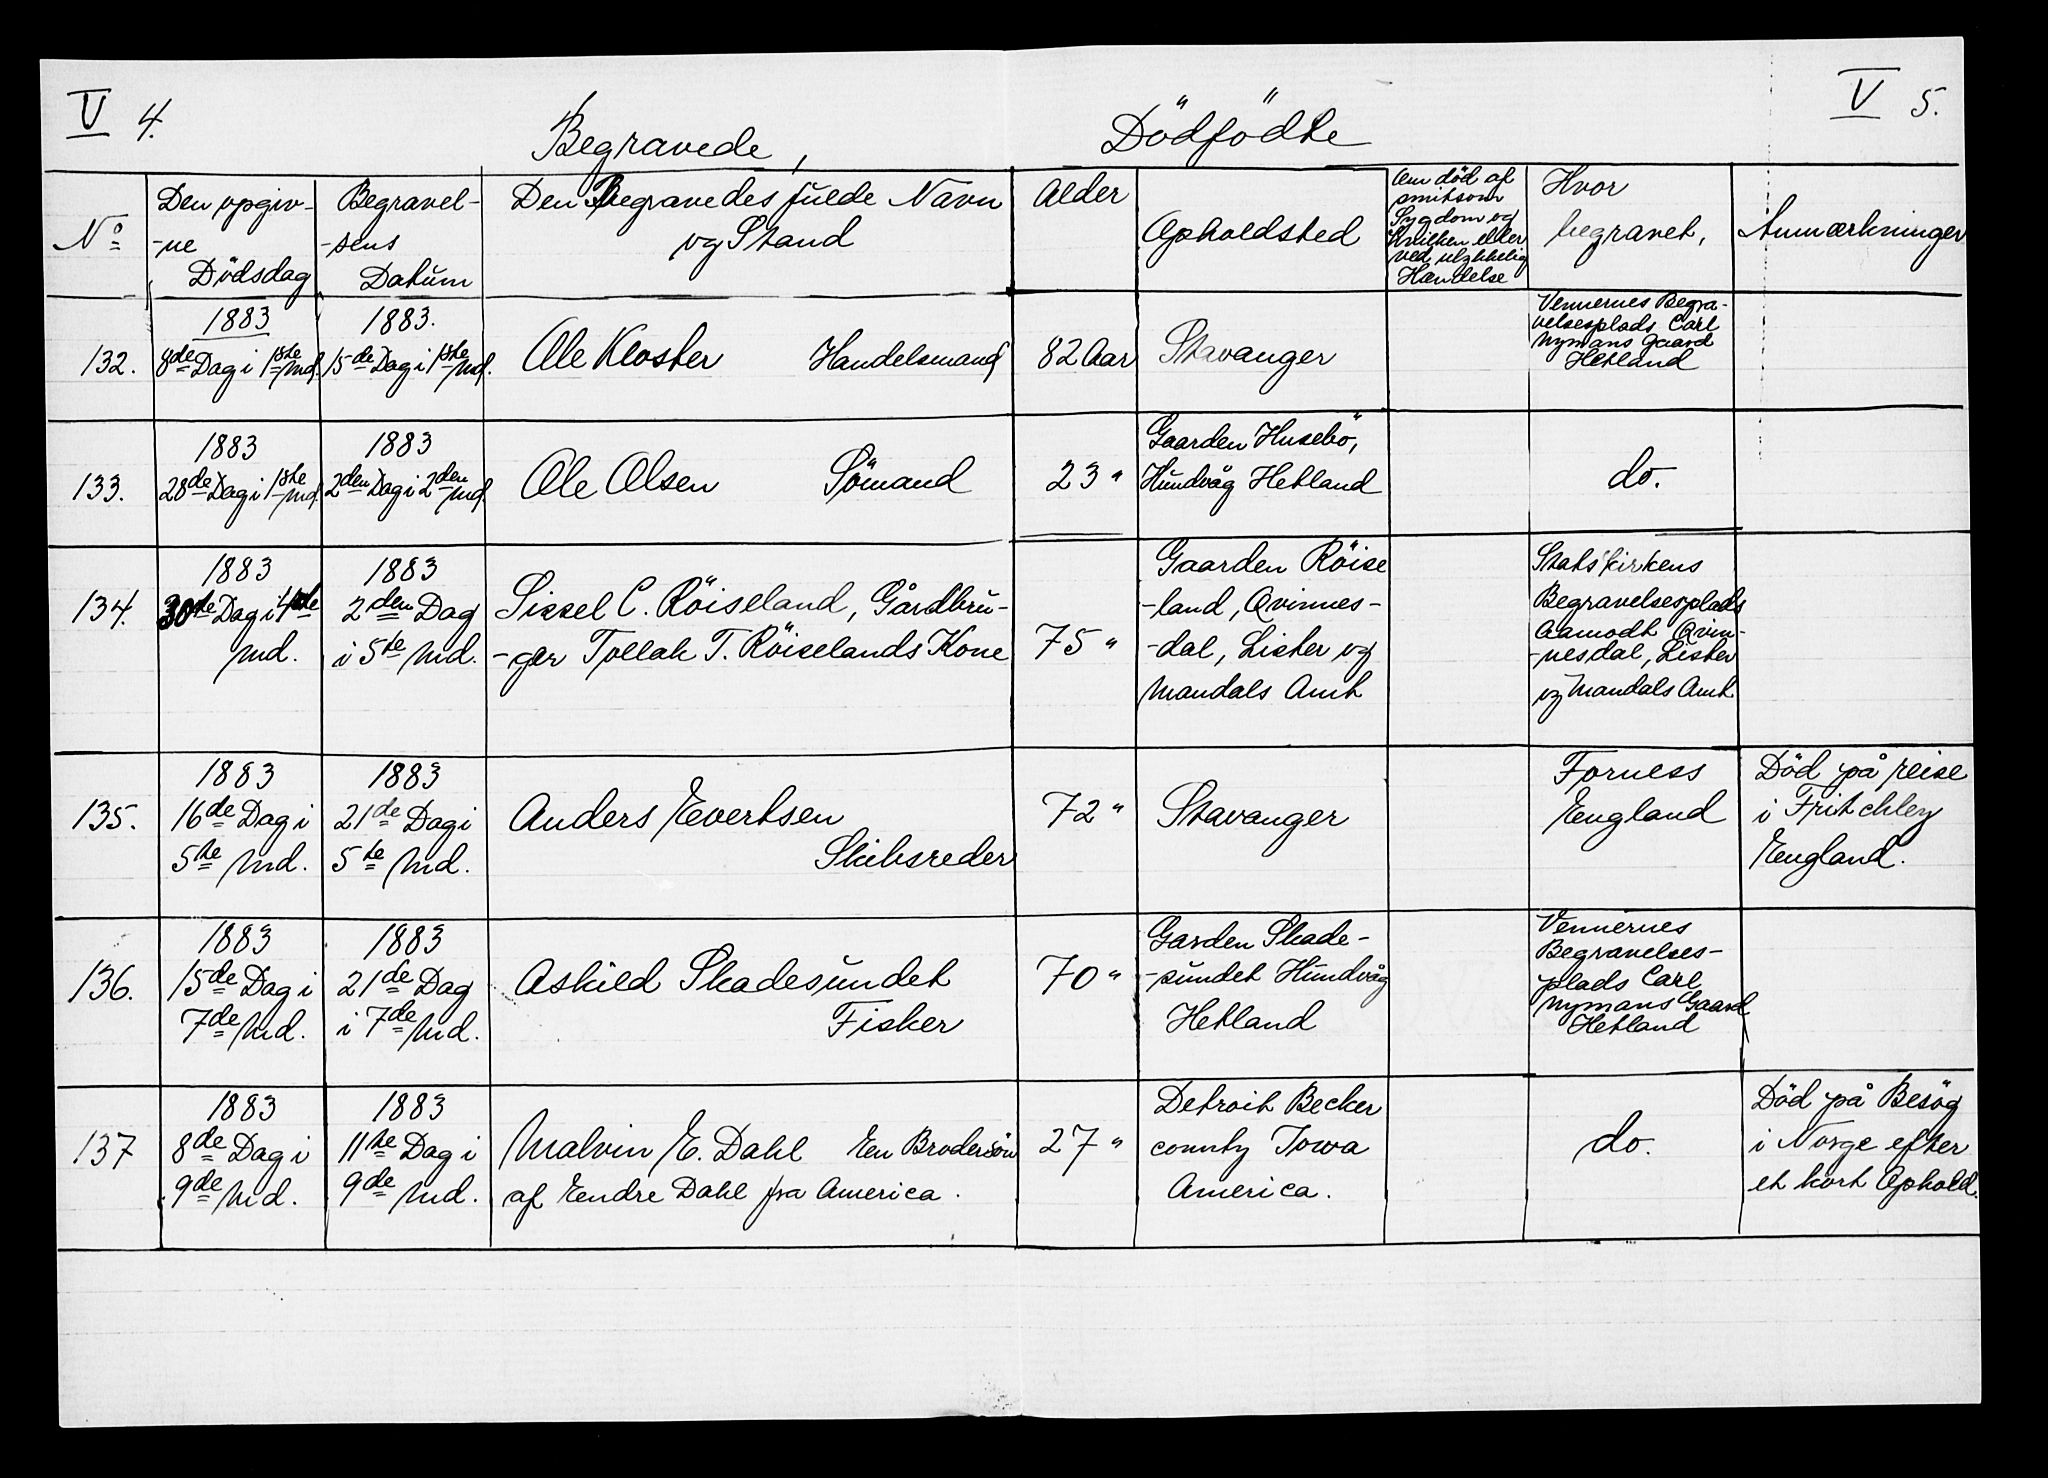 V 4.
V 5.
Begravede, Dödfödte
No
Den opgiv-
-ne
Dödsdag
Begravel-
-sens
Datum
Den Begravedes fulde Navn
og Stand
Alder
Opholdsted
Om död af
smitsom
Sygdom og
hvilken eller
ved ulykkelig
Hændelse
Hvor
begravet,
Anmærkninger
132.
1883
8de Dag i 1ste Md.
1883.
15de Dag i 1ste Md.
Ole Kloster Handelsmand
82 Aar
Stavanger
Vennernes Begra-
velsesplads Carl
Nymans Gaard
Hetland
133.
1883
28de Dag i 1ste Md.
1883
2den Dag i 2den Md.
Ole Olsen Sömand
23 "
Gaarden Husebö,
Hundvåg Hetland
do.
134.
1883
30te Dag i 4de
Md.
1883
2den Dag
i 5te Md.
Sissel C. Röiseland, Gårdbru-
-ger Tollak T. Röiselands Kone
75 "
Gaarden Röise
-land, Qvinnes-
-dal, Lister og
Mandals Amt
Statskirkens
Begravelsesplads
Aamodt Qvin-
-nesdal, Lister
og Mandals Amt
135.
1883
16de Dag i
5te Md.
1883
21de Dag i
5te Md.
Anders Evertsen
Skibsreder
72 "
Stavanger
Forness
England
Död på reise
i Fritchley
England.
136.
1883
15de Dag i
7de Md.
1883
21de Dag
i 7de Md.
Askild Skadesundet
Fisker
70 "
Garden Skade-
-sundet Hundvåg
Hetland
Vennernes
Begravelses-
plads Carl
Nymans Gaard
Hetland
137
1883
8de Dag i
9de Md.
1883
11te Dag i
9de Md.
Malvin E. Dahl En Brodersön
af Endre Dahl fra America.
27 "
Detroit Becker
county Iowa
America.
do.
Död på Besög
i Norge efter
et kort Ophold.